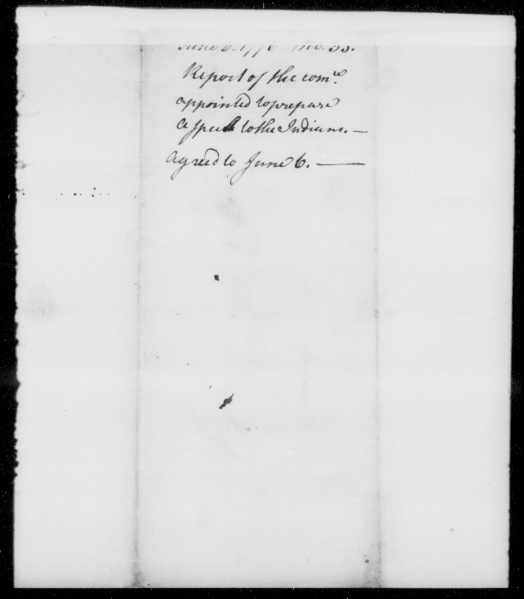 June 6. 1776 No. 35.
Report of the com.ee
appointed to prepare
a speech to the Indians. —
agreed to June 6. —